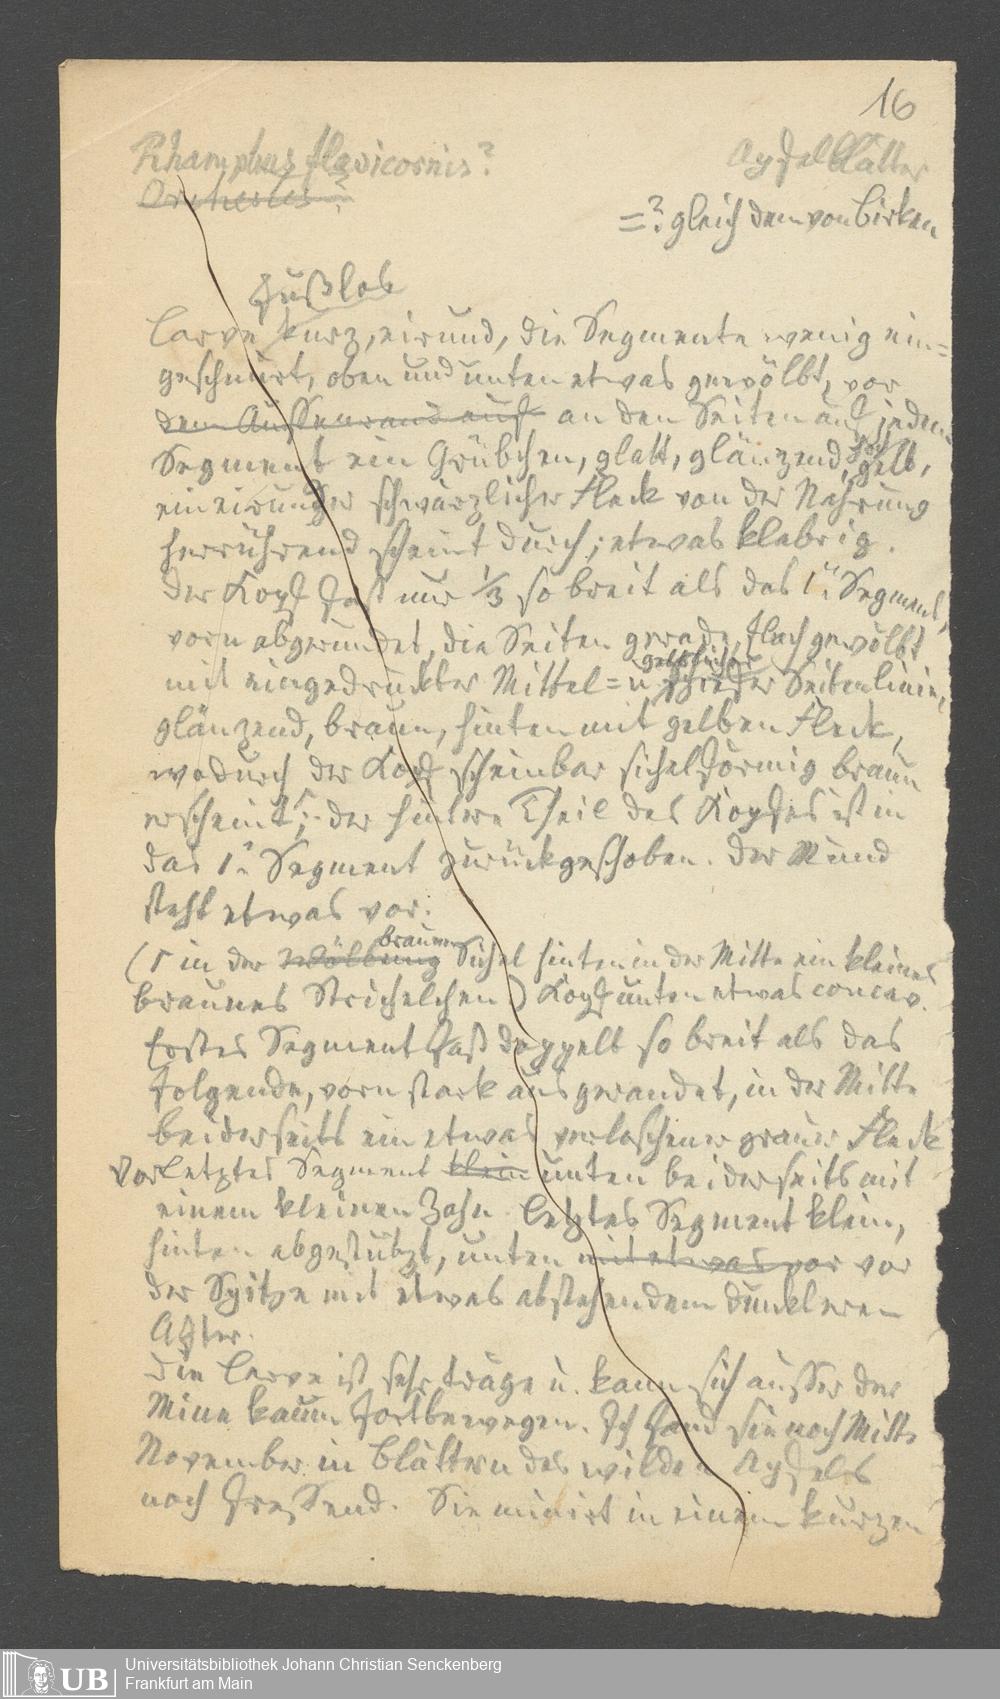 16
Rhamphus flavicornis? Apfelblätter
Orchestes?
=? gleich dem von Birken
fußlos
Larve kurz, eirund, die Segmente wenig ein=
geschnürt, oben und unten etwas gewölbt, vor
dem Aussenrand auf an den Seiten auf jedem
Segment ein Grübchen, glatt, glänzend, gelb,
ein eirunder schwärzlicher Fleck von der Nahrung
herrührend scheint durch; etwas klebrig.
Der Kopf fast nur 1/3 so breit als das 1n Segment,
vorn abgerundet, die Seiten gerade, flach gewölbt
gelblicher
mit eingedrückter Mittel= u. schiefer Seitenlinie,
glänzend, braun, hinten mit gelben Fleck,
wodurch der Kopf scheinbar sichelförmig braun
erscheint Γ; der hintere Theil des Kopfes ist in
das 1n Segment zurückgeschoben. Der Mund
steht etwas vor.
braunen
(Γ in der Wölbung Sichel hinten in der Mitte ein kleines
braunes Strichelchen) Kopf unten etwas concav.
Erstes Segment fast doppelt so breit als das
folgende, vorn stark ausgerandet, in der Mitte
beiderseits ein etwas verloschener grauer Fleck
Vorletztes Segment klein unten beiderseits mit
einem kleinen Zahn. Letztes Segment klein,
hinten abgestutzt, unten mit etwas vor vor
der Spitze mit etwas abstehendem dunkleren
After.
Die Larve ist sehr träge u. kann sich ausser der
Mine kaum fortbewegen. Ich fand sie noch Mitte
November in Blättern des wilden Apfels
noch fressend. Sie minirt in einem kurzen
UB
Universitätsbibliothek Johann Christian Senckenberg
Frankfurt am Main